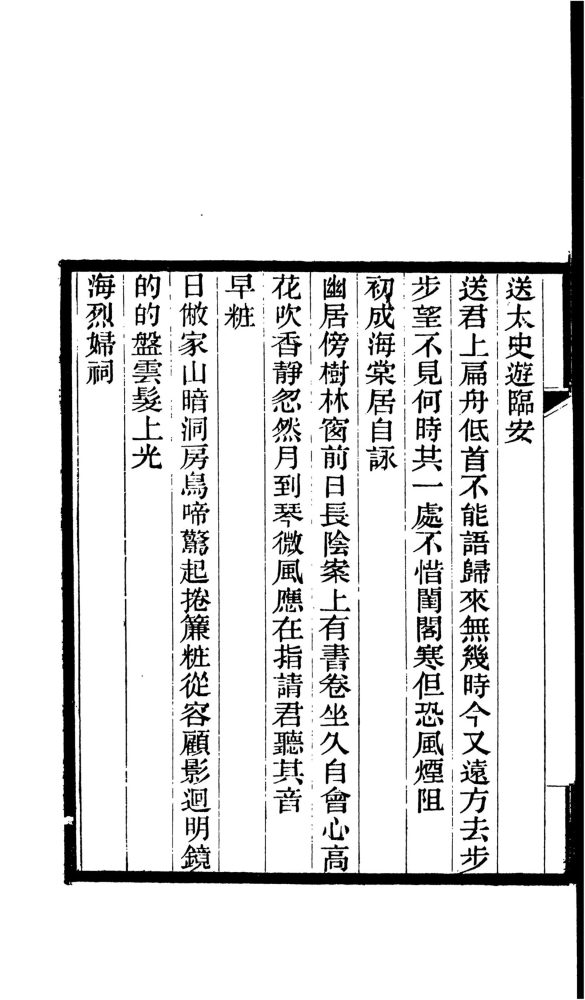 送太史遊臨安
送君上扁舟低首不能語歸來無幾時今又遠方去步
步望不見何時共一處不惜閨閣寒但恐風煙阻
初成海棠居自詠
幽居傍樹林窗前日長陰案上有書卷坐久自會心高
花吹香靜忽然月到琴微風應在指請君聽其音
早粧
日僘家山暗洞房鳥啼驚起捲簾粧從容顧影迴明鏡
的的盤雲髮上光
海烈婦祠